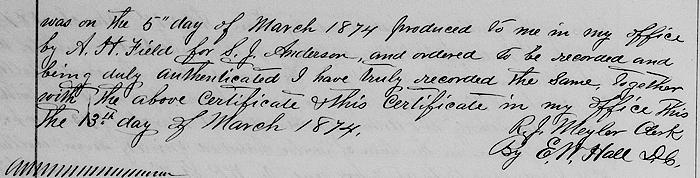 was on the 5" day of March 1874 produced to me in my office
by A. H. Field for S. J. Anderson, and ordered to be recorded and
being duly authenticated I have truly recorded the same, together
with the above Certificate & this Certificate in my office this
the 13th day of March 1874.
R. J. Meyler Clerk
By E. W. Hall D.C.